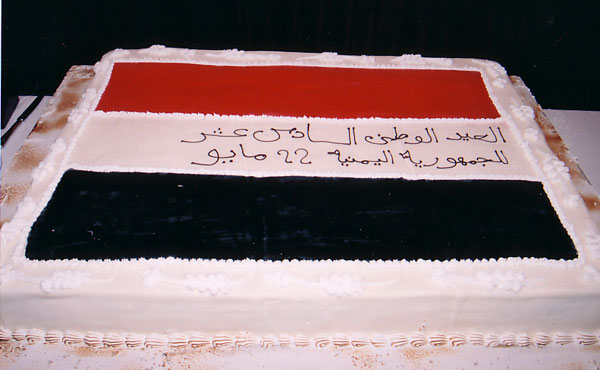 العيد الوطني السادس عشر
للجمهورية اليمنية 22 مايو